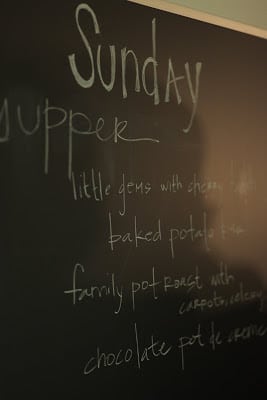 Sunday
supper
little gems with cherry
baked potato
family pot roast with
carrots, celery
chocolate pot de creme